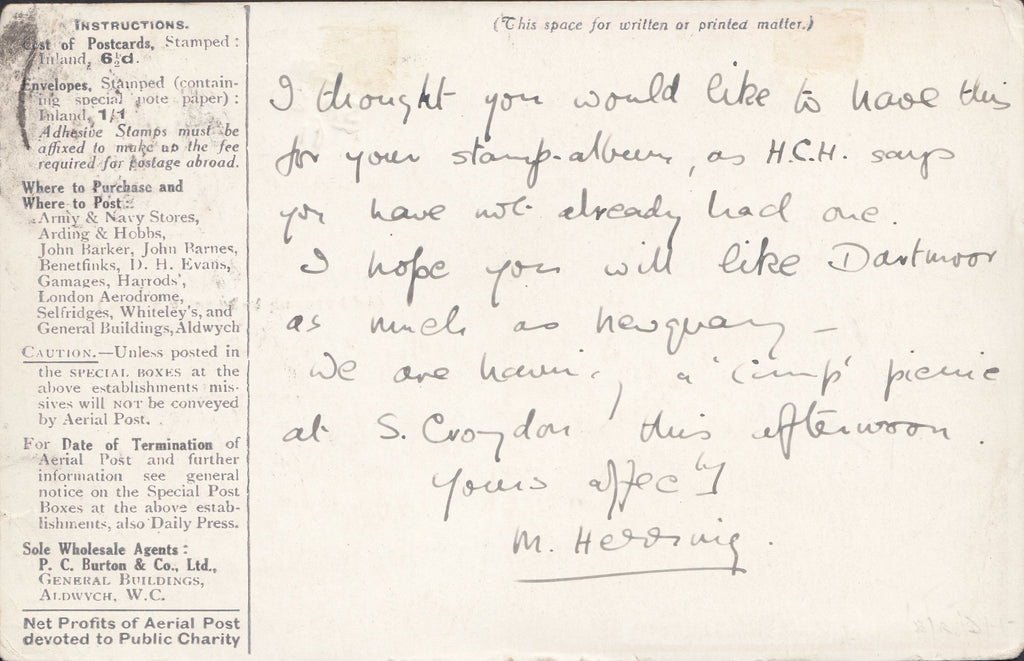 INSTRUCTIONS.
Cost of Postcards, Stamped:
Inland, 6½d.
Envelopes, Stamped (contain-
ing special note paper):
Inland, 1/1
Adhesive Stamps must be
affixed to make up the fee
required for postage abroad.
Where to Purchase and
Where to Post:
Army & Navy Stores,
Arding & Hobbs,
John Barker, John Barnes,
Benetfinks, D. H. Evans,
Gamages, Harrods',
London Aerodrome,
Selfridges, Whiteley's, and
General Buildings, Aldwych
CAUTION.—Unless posted in
the SPECIAL BOXES at the
above establishments mis-
sives will NOT be conveyed
by Aerial Post.
For Date of Termination of
Aerial Post and further
information see general
notice on the Special Post
Boxes at the above estab-
lishments, also Daily Press.
Sole Wholesale Agents:
P. C. Burton & Co., Ltd.,
GENERAL BUILDINGS,
ALDWYCH, W.C.
Net Profits of Aerial Post
devoted to Public Charity
(This space for written or printed matter.)
I thought you would like to have this
for your stamp-album, as H.C.H. says
you have not already had one.
I hope you will like Dartmoor
as much as Newquay –
We are having a 'camp' picnic
at S. Croydon this afternoon.
Yours affecly
M. Herring.